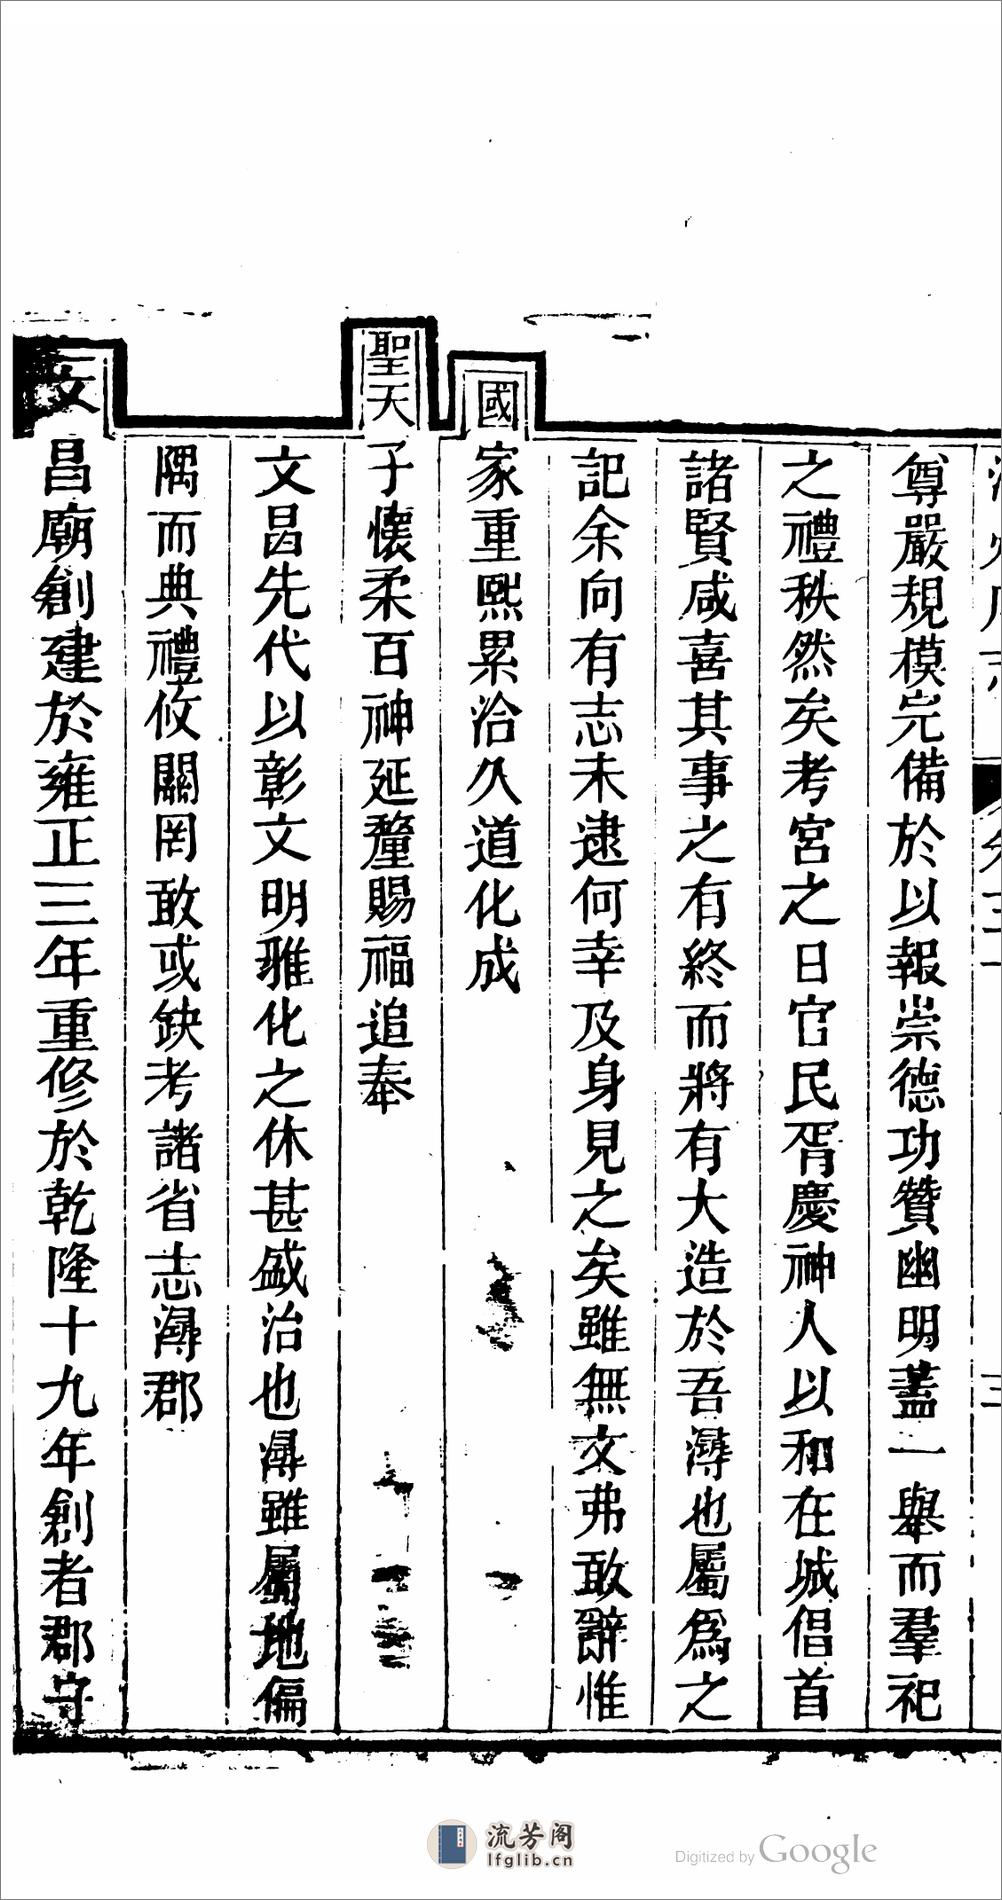 尊嚴規模完備於以報崇德功贊幽明蓋一舉而羣祀
之禮秩然矣考宮之日官民胥慶神人以和在城倡首
諸賢咸喜其事之有終而將有大造於吾潯也屬爲之
記余向有志未逮何幸及身見之矣雖無文弗敢辭惟
國家重熙累洽久道化成
聖天子懷柔百神延釐賜福追奉
文昌先代以彰文明雅化之休甚盛治也潯雖屬地偏
隅而典禮攸關罔敢或缺考諸省志潯郡
文昌廟創建於雍正三年重修於乾隆十九年創者郡守
流芳阁
lfglib.cn
Digitized by Google